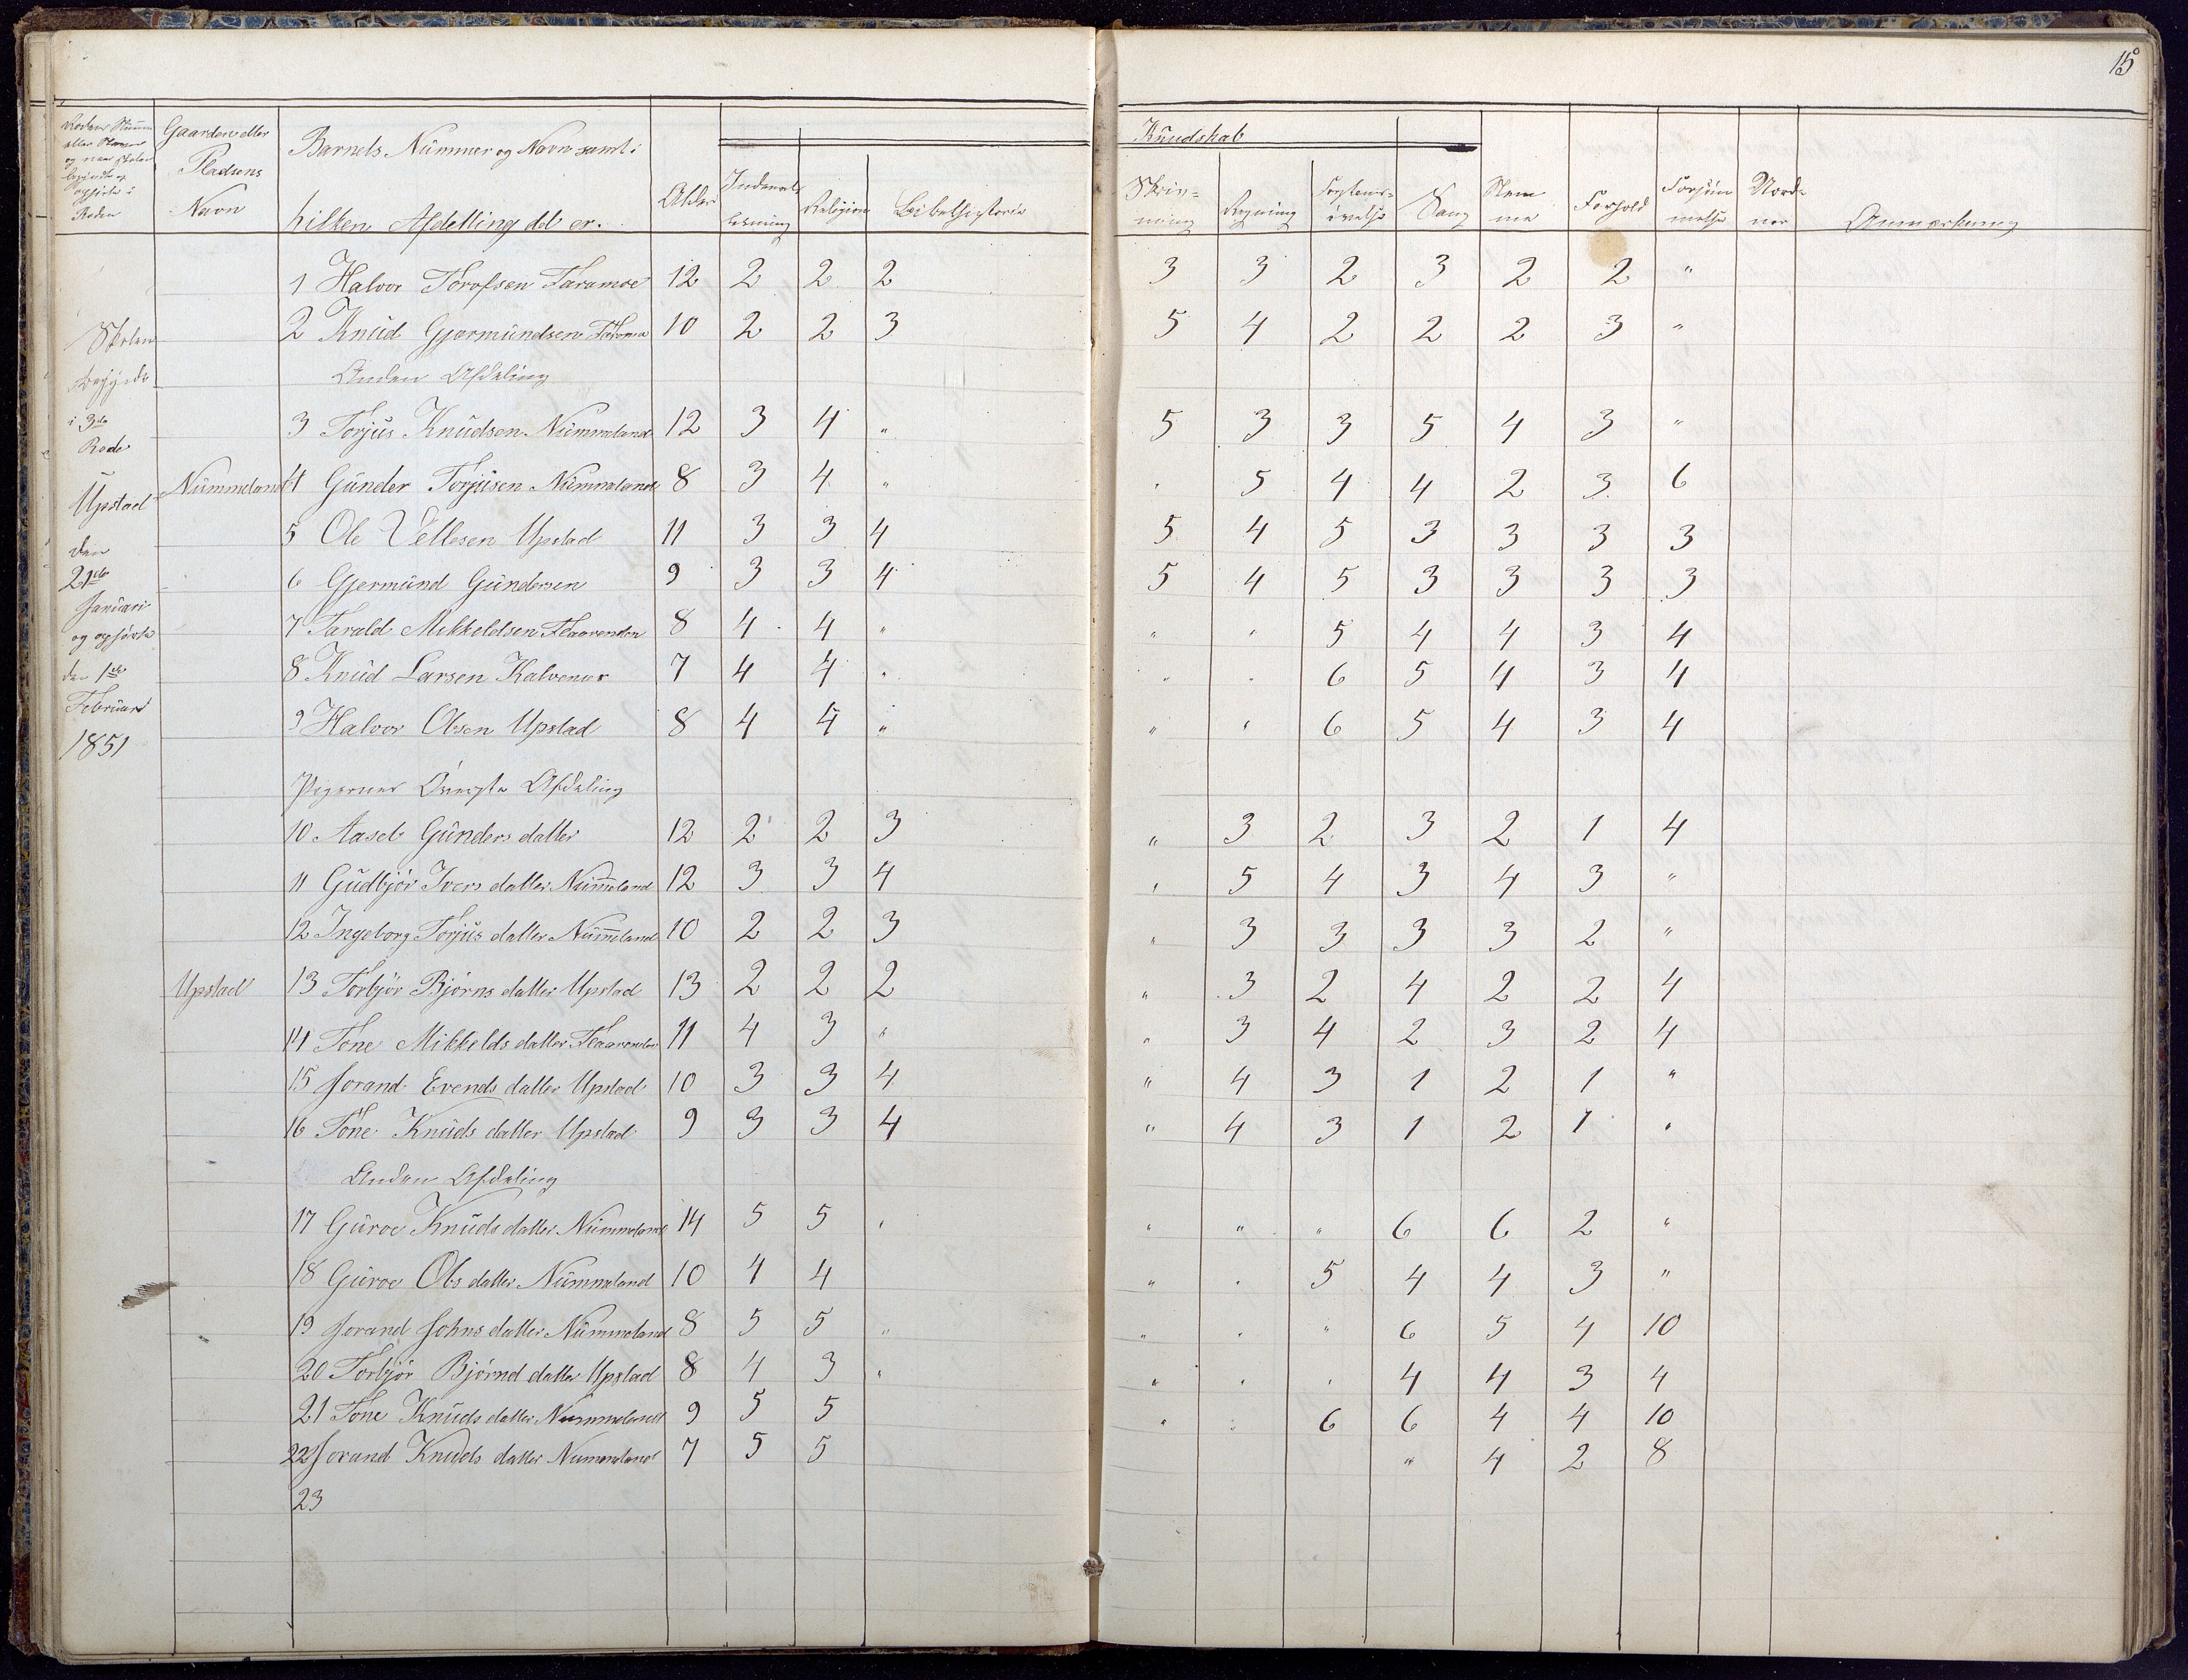 15
Kundskab
Gaardens eller Pladsens Navn
Barnets Nummer og Navn samt i hilken Afdelling det er.
Alder
Indenads Læsning
Religion
Bibelhistorie
Skrivning
Regning
Forstandsøvelse
Sang
Stemme
Forhold
Forsømmelse
Anmærkning
Skolen
begyndt
i 3die
Rode
Upstad
den
21de
Januari
og ophørte
den 1ste
Februari
1851
1 Halvor Torofsen Faramoe 12 2 2 2 3 3 2 3 2 2 "
2 Knud Gjermundsen 10 2 2 3 5 4 2 2 2 3 "
Anden Afdeling
3 Torjus Knudsen Nummeland 12 3 4 " 5 3 3 5 4 3 "
Nummeland 4 Gunder Torjusen Nummeland 8 3 4 " " 5 4 4 2 3 6
5 Ole Vellesen Upstad 11 3 3 4 5 4 5 3 3 3 3
6 Gjermund Gundersen 9 3 3 4 5 4 5 3 3 3 3
7 Tarald Mikkeldsen Flaarenden 8 4 4 " " " 5 4 4 3 4
8 Knud Larsen Kalvenæs 7 4 4 " " " 6 5 4 3 4
9 Halvor Olsen Upstad 8 4 4 " " " 6 5 4 3 4
Pigernes Øverste Afdeling
10 Aaseb Gunders datter 12 2 2 3 " 3 2 3 2 1 4
11 Gudbjør Ivers datter Nummeland 12 3 3 4 " 5 4 3 4 3 "
12 Ingeborg Torjus datter Nummeland 10 2 2 3 " 3 3 3 3 2 "
Upstad 13 Torbjør Bjørns datter Upstad 13 2 2 2 " 3 2 4 2 2 4
14 Tone Mikkelds datter Flaarenden 11 4 3 " " 3 4 2 3 2 4
15 Jorand Evends datter Upstad 10 3 3 4 " 4 3 1 2 1 "
16 Tone Knuds datter Upstad 9 3 3 4 " 4 3 1 2 1 "
Anden Afdeling
17 Guroe Knuds datter Nummeland 14 5 5 " " " " 6 6 2 "
18 Guroe Ols datter Nummeland 10 4 4 " " 5 4 4 3 "
19 Jorand Johns datter Nummeland 8 5 5 " " " " 6 5 4 10
20 Torbjør Bjørnd datter Upstad 8 4 3 " " " " 4 4 3 4
21 Tone Knuds datter Nummeland 9 5 5 " " 6 6 4 4 10
22 Jorand Knuds datter Nummeland 7 5 5 " 4 2 8
23